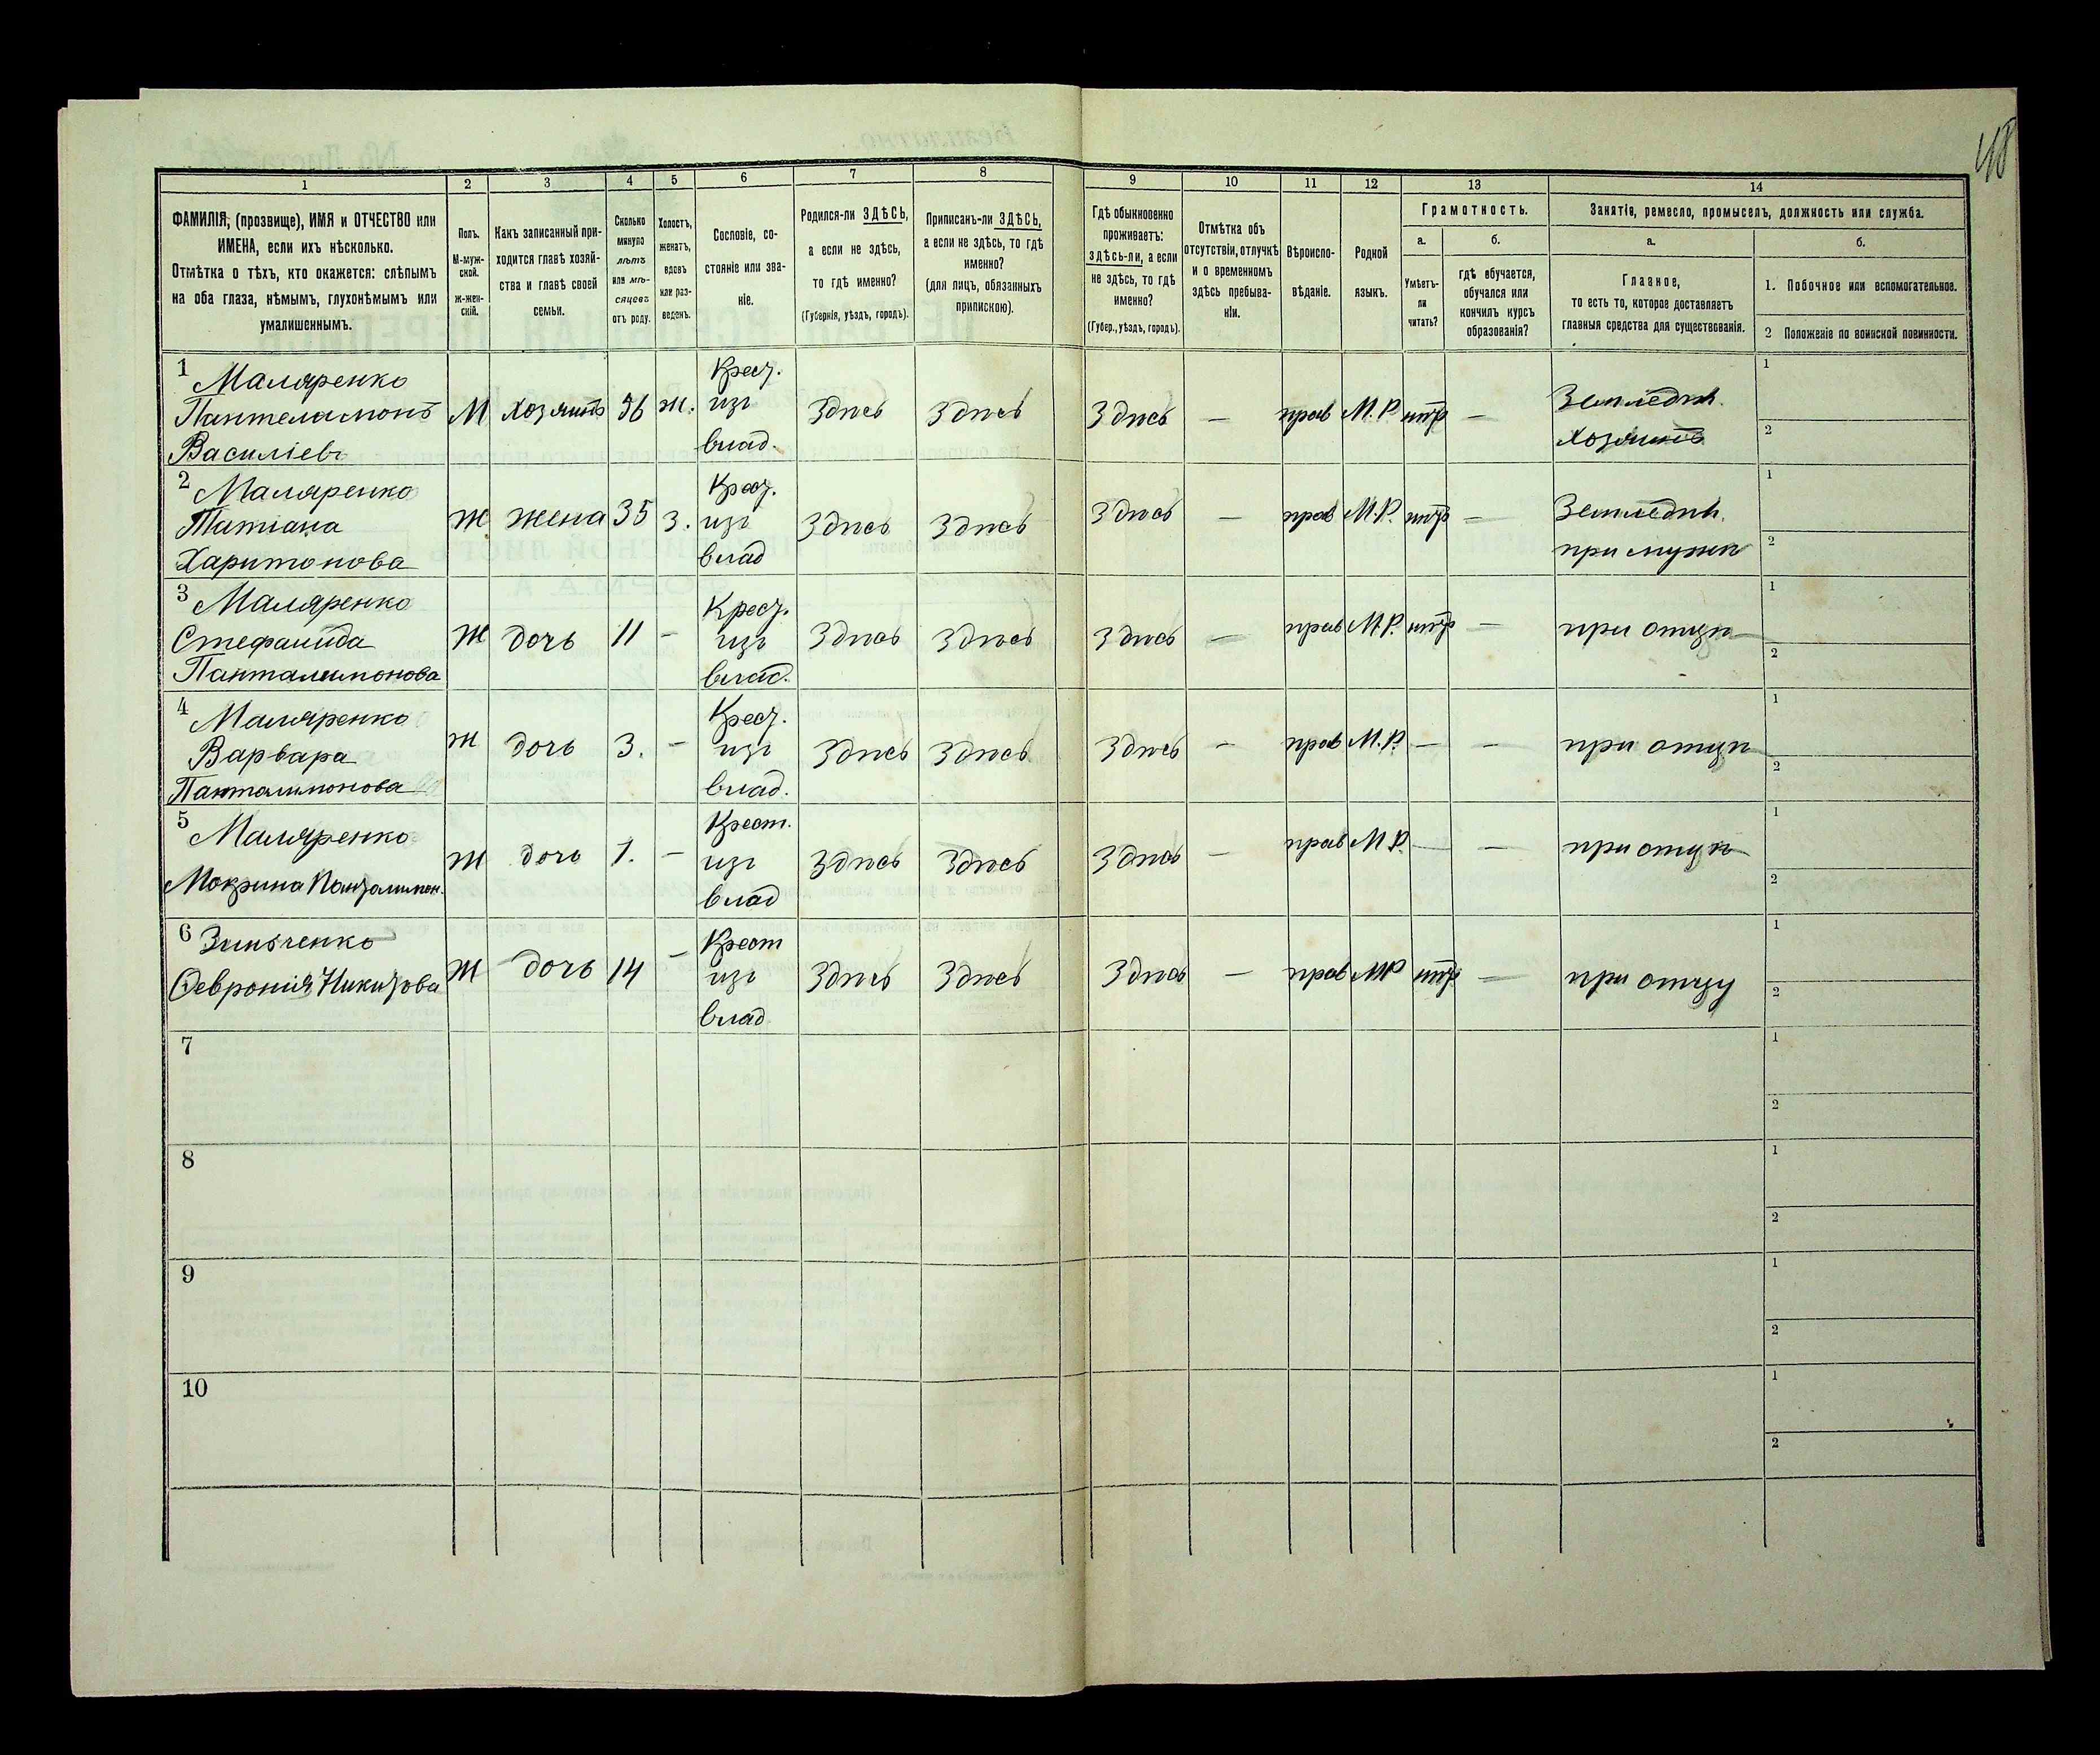 48
1 2 3 4 5 6 7 8 9 10 11 12 13 14
ФАМИЛІЯ, (прозвище), ИМЯ и ОТЧЕСТВО или
ИМЕНА, если ихъ нѣсколько.
Отмѣтка о тѣхъ, кто окажется: слѣпымъ
на оба глаза, нѣмымъ, глухонѣмымъ или
умалишеннымъ.
Полъ.
М-муж-
ской.
ж-жен-
скій.
Какъ записанный при-
ходится главѣ хозяй-
ства и главѣ своей
семьи.
Сколько
минуло
лѣтъ
или мѣ-
сяцевъ
отъ роду.
Холостъ,
женатъ,
вдовъ
или раз-
веденъ.
Сословіе, со-
стояніе или зва-
ніе.
Родился-ли ЗДѢСЬ,
а если не здѣсь,
то гдѣ именно?
(Губернія, уѣздъ, городъ).
Приписанъ-ли ЗДѢСЬ,
а если не здѣсь, то гдѣ
именно?
(для лицъ, обязанныхъ
припискою).
Гдѣ обыкновенно
проживаетъ:
здѣсь-ли, а если
не здѣсь, то гдѣ
именно?
(Губер., уѣздъ, городъ).
Отмѣтка объ
отсутствіи, отлучкѣ
и о временномъ
здѣсь пребыва-
ніи.
Вѣроиспо-
вѣданіе.
Родной
языкъ.
Грамотность.
а.
Умѣетъ-
ли
читать?
б.
гдѣ обучается,
обучался или
кончилъ курсъ
образованія?
Занятіе, ремесло, промыселъ, должность или служба.
а.
Главное,
то есть то, которое доставляетъ
главныя средства для существованія.
б.
1. Побочное или вспомогательное.
2 Положеніе по воинской повинности.
1 Маляренко
Пантеламонъ
Василіевъ
М хозяинъ 36 ж.
Крест.
изъ
влад.
Здѣсь Здѣсь Здѣсь — прав М.Р. нѣтъ —
Земледѣл.
хозяинъ
1
2
2 Маляренко
Татіана
Харитонова
Ж жена 35 з.
Крест.
изъ
влад
Здѣсь Здѣсь Здѣсь — прав М.Р. нѣтъ —
Земледѣл.
при мужѣ
1
2
3 Маляренко
Стефанида
Панталимонова
Ж дочь 11 —
Крест.
изъ
влад.
Здѣсь Здѣсь Здѣсь — прав М.Р. нѣтъ —
при отцѣ
1
2
4 Маляренко
Варвара
Панталимонова
Ж дочь 3. —
Крест.
изъ
влад.
Здѣсь Здѣсь Здѣсь — прав М.Р. — —
при отцѣ
1
2
5 Маляренко
Мокрина Панталимон.
Ж дочь 1. —
Крест.
изъ
влад
Здѣсь Здѣсь Здѣсь — прав М.Р. — —
при отцѣ
1
2
6 Зинченко
Февронія Никитова
Ж дочь 14 —
Крест
изъ
влад
Здѣсь Здѣсь Здѣсь — прав МР нѣтъ —
при отцу
1
2
7
1
2
8
1
2
9
1
2
10
1
2